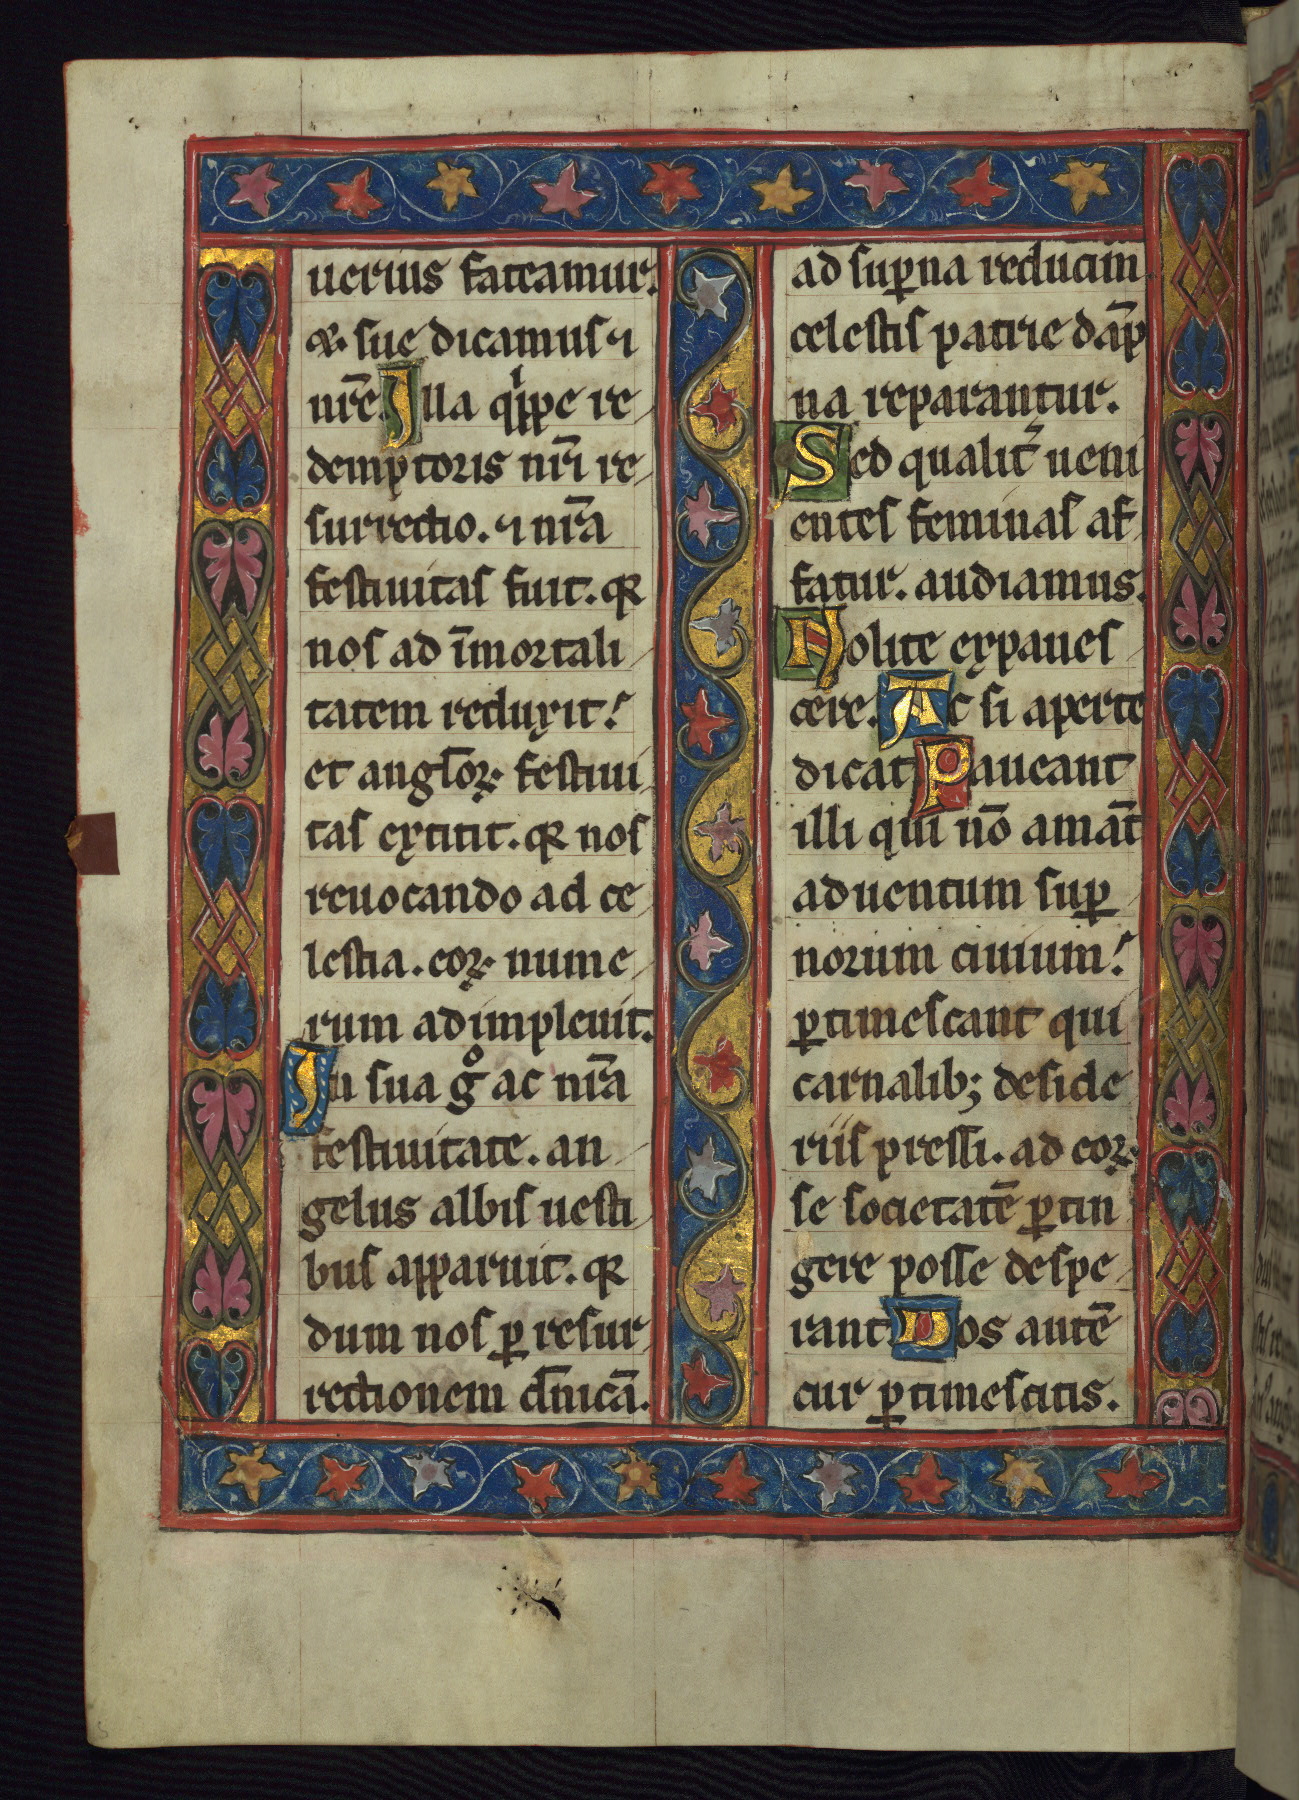 uerius fateamur.
⁊ sue dicamus ⁊
nr̄e. Illa qͥppe re
demptoris nr̄i re
surrectio. ⁊ nr̄a
festiuitas fuit. qꝛ
nos ad īmortali
tatem reduxit.
et angl̄oꝝ festiui
tas extitit. qꝛ nos
reuocando ad ce
lestia. eoꝝ nume
rum adimpleuit.
In sua gͦ ac nr̄a
festiuitate. an
gelus albis uesti
bus apparuit. qꝛ
dum nos ꝑ resur
rectionem dn̄icā.
ad suꝑna reducim
celestis patrie dāp
na reparantur.
Sed qualit̄ ueni
entes feminas af
fatur. audiamus.
Nolite expaues
cere. Ac si aperte
dicat Paueant
illi qui nō amāt
aduentum suꝑ
norum ciuium.
ꝑtimescant qui
carnalib; deside
riis pressi. ad eoꝝ
se societatē ꝑtin
gere posse despe
rant Uos autē
cur ꝑtimescitis.